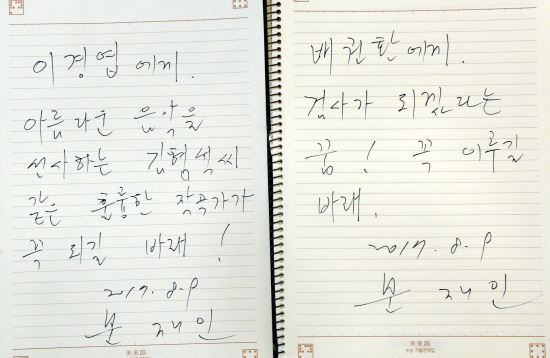 이경엽에게.
아름다운 음악을
선사하는 김형석씨
같은 훌륭한 작곡가가
꼭 되길 바래!
2017. 8. 9
문재인
美來路
배권환에게.
검사가 되겠다는
꿈! 꼭 이루길
바래.
2017. 8. 9
문재인
美來路